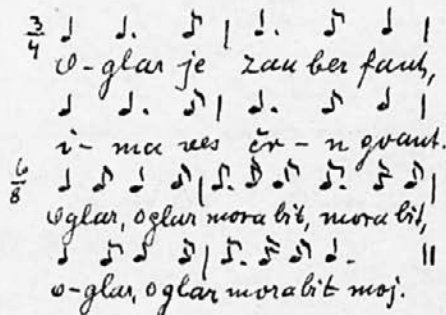 3/4
o-glar je zauber fant,
i-ma ves čr-n gvant.
6/8
oglar, oglar mora bit, mora bit,
o-glar, oglar mora bit moj.